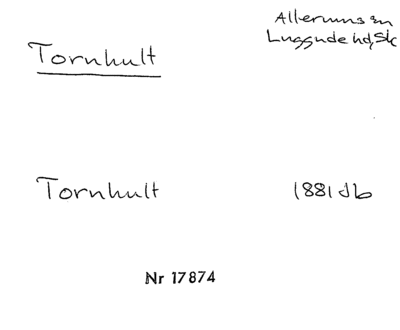 Allerums sn
Luggude hd, Sk
Tornhult
Tornhult 1881 Jb
Nr 17874